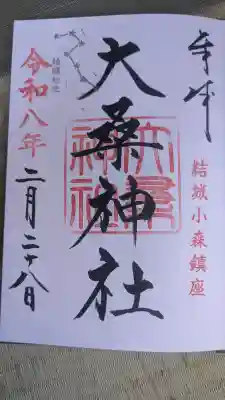 奉拝
結城小森鎮座
大桑神社
大桑神社
令和八年
二月二十八日